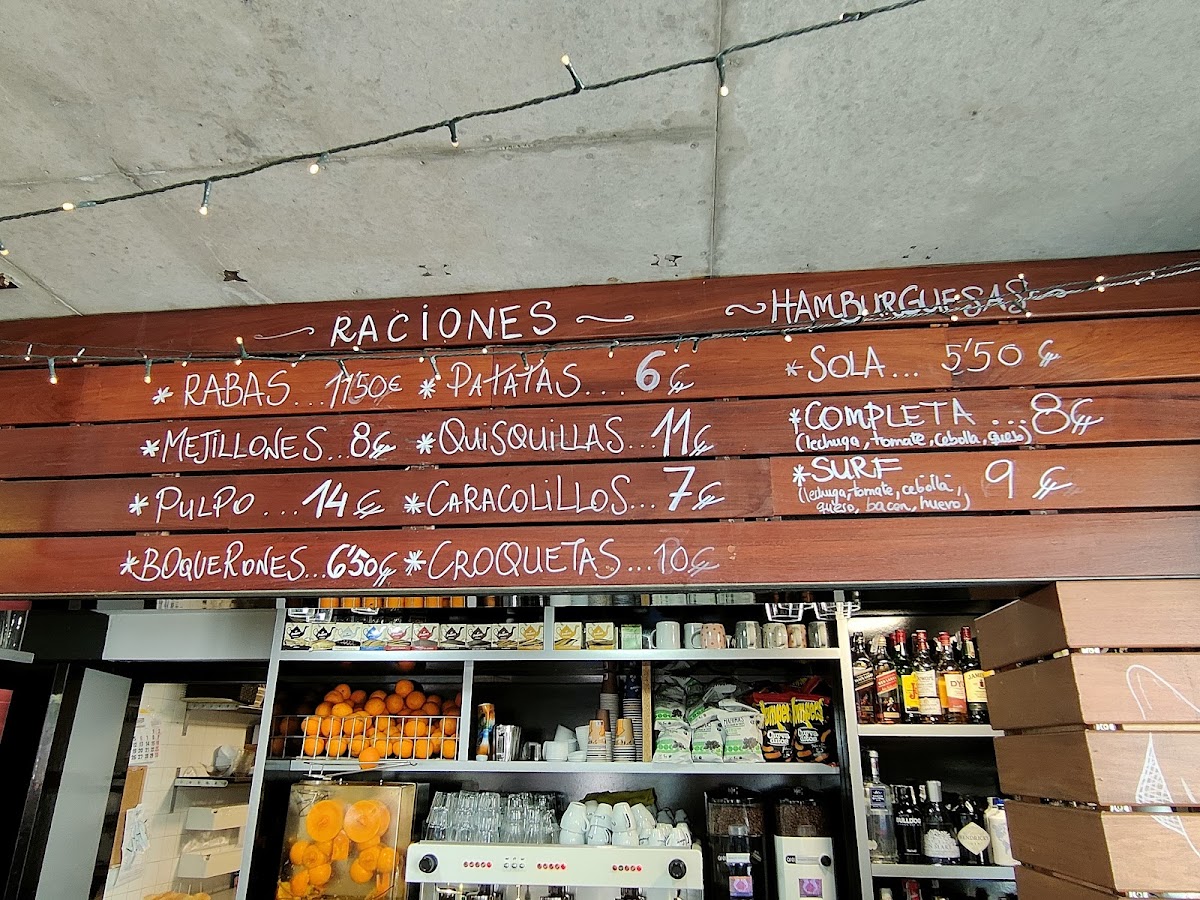 RACIONES
* RABAS ... 11'50€
* MEJILLONES... 8€
* PULPO .... 14 €
* BOQUERONES... 6'50€
* PATATAS... 6€
* QUISQUILLAS... 11€
* CARACOLILLOS... 7€
* CROQUETAS... 10€
~ HAMBURGUESAS ~
* SOLA... 5'50 €
* COMPLETA ... 8€
(lechuga, tomate, cebolla, queso)
* SURF 9 €
(lechuga, tomate, cebolla,
queso, bacon, huevo)